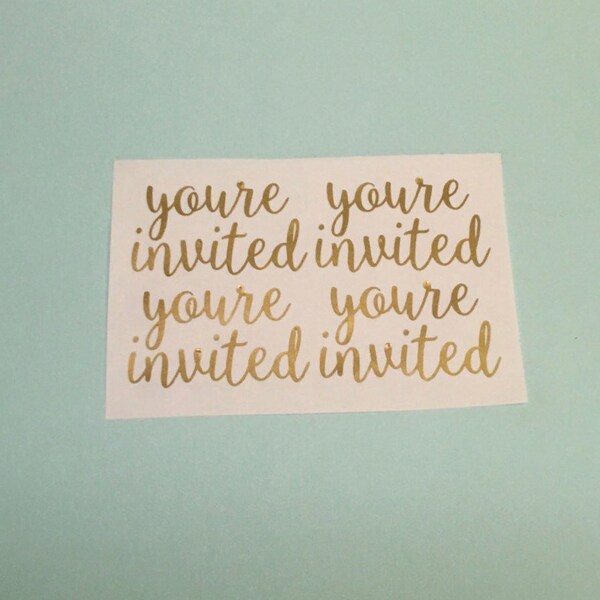 youre youre
invited invited
youre youre
invited invited